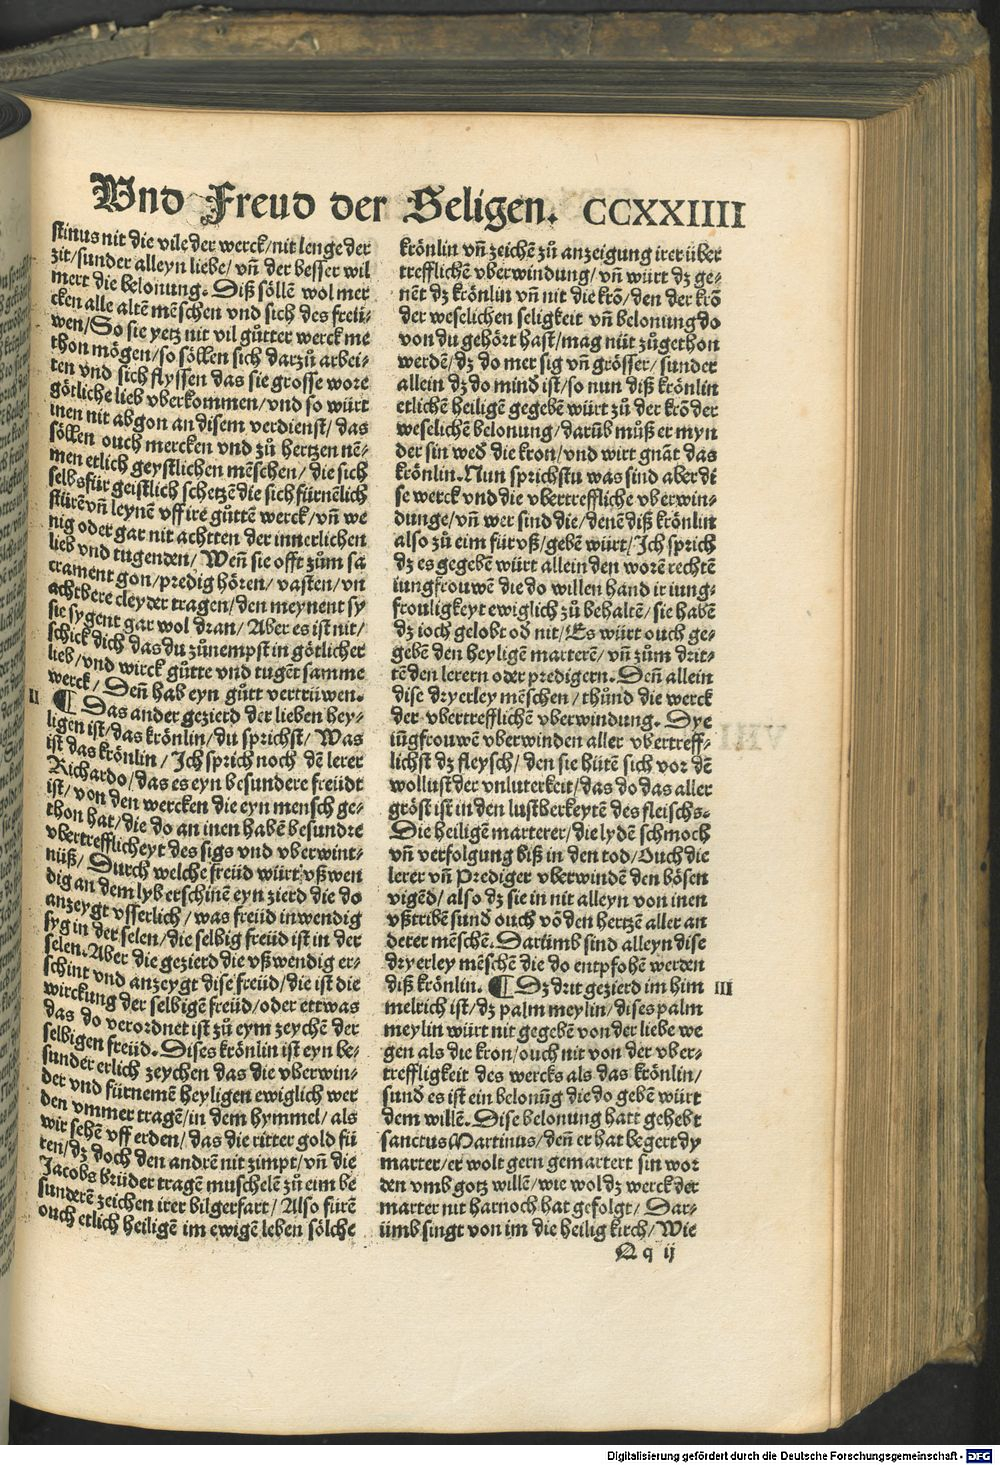 Vnd Freud der Seligen. CCXXIIII
stinus nit die vile der werck/nit lenge der
zit/sunder alleyn liebe/ vn̄ der besser wil
mert die belonung. Diß söllē wol mer
cken alle altē mēschen vnd sich des freü-
wen/So sie yetz nit vil gůtter werck me
thon mögen/so söllen sich darzů arbei-
ten vnd sich flyssen das sie grosse wore
götliche lieb vberkommen/vnd so würt
inen nit abgon an disem verdienst/ das
söllen ouch mercken vnd zů hertzen nē-
men etlich geystlichen mēschen/ die sich
selbs für geistlich schetzē die sich fürnēlich
stürē vn̄ leynē vff ire gůttē werck/vn̄ we
nig oder gar nit achtten der innerlichen
lieb vnd tugenden/ Wen̄ sie offt zům sa
crament gon/predig hören/ vasten/ vn
achtbere cleyder tragen/den meynent sy
sie sygent gar wol dran/ Aber es ist nit/
schick dich das du zůnempst in götlicher
lieb/vnd wirck gůtte vnd tugēt samme
werck/ Den̄ hab eyn gůtt vertrüwen.
II ¶ Das ander gezierd der lieben hey-
ligen ist/das krönlin/du sprichst/ Was
ist das krönlin/ Ich sprich noch dē lerer
Richardo/das es eyn besundere freüdt
ist/ von den wercken die eyn mensch ge-
thon hat/die do an inen habē besundre
vbertrefflicheyt des sigs vnd vberwint-
nüß/ Durch welche freüd würt vßwen
dig an dem lyb erschinē eyn zierd die do
anzeygt vsserlich/was freüd inwendig
syg in der selen/die selbig freüd ist in der
selen. Aber die gezierd die vßwendig er-
schint vnd anzeygt dise freüd/die ist die
wirckung der selbigē freüd/oder ettwas
das do verordnet ist zů eym zeychē der
selbigen freüd. Dises krönlin ist eyn be-
sunder erlich zeychen das die vberwin-
der vnd fürnemē heyligen ewiglich wer
den vmmer tragē/in dem hymmel/ als
wir sehē vff erden/ das die ritter gold fü
ren/dz doch den andrē nit zimpt/vn̄ die
Jacobs brüder tragē muschelē zů eim be
sunderē zeichen irer bilgerfart/ Also fürē
ouch etlich heiligē im ewigē leben sölche
krönlin vn̄ zeichē zů anzeigung irer über
trefflichē vberwindung/ vn̄ würt dz ge-
nēt dz krönlin vn̄ nit die krō/den der krō
der weselichen seligkeit vn̄ belonung do
von du gehört hast/mag nüt zůgethon
werdē/dz do mer sig vn̄ grösser/ sunder
allein dz do mind̄ ist/so nun diß krönlin
etlichē heiligē gegebē würt zů der krō der
weselichē belonung/darūb můß er myn
der sin wed̄ die kron/vnd wirt gnāt das
krönlin. Nun sprichstu was sind aber di
se werck vnd die vbertreffliche vberwin-
dunge/vn̄ wer sind die/denē diß krönlin
also zů eim für vß/gebē würt/Ich sprich
dz es gegebē würt allein den worē rechtē
iungfrouwē die do willen hand ir iung-
frouligkeyt ewiglich zů behaltē/sie habē
dz ioch gelobt od̄ nit/Es würt ouch ge-
gebē den heyligē marterē/ vn̄ zům drit-
tē den lerern oder predigern. Den̄ allein
dise dryerley mēschen/ thůnd die werck
der vbertrefflichē vberwindung. Dye
iūgfrouwē vberwinden aller vbertreff-
lichst dz fleysch/ den sie hütē sich vor dē
wollust der vnluterkeit/das do das aller
gröst ist in den lustberkeytē des fleischs.
Die heiligē marterer/die lydē schmoch
vn̄ verfolgung biß in den tod/Ouch die
lerer vn̄ Prediger vberwindē den bösen
vigēd/ also dz sie in nit alleyn von inen
vßtribē sund̄ ouch vō den hertzē aller an
derer mēschē. Darūmb sind alleyn dise
dryerley mēschē die do entpfohē werden
diß krönlin. ¶ Dz drit gezierd im him III
melrich ist/dz palm meylin/dises palm
meylin würt nit gegebē von der liebe we
gen als die kron/ouch nit von der vber-
treffligkeit des wercks als das krönlin/
sund̄ es ist ein belonūg die do gebē würt
dem willē. Dise belonung hatt gehebt
sanctus Martinus/den̄ er hat begert dy
marter/er wolt gern gemartert sin wor
den vmb gotz willē/wie wol dz werck der
marter nit harnoch hat gefolgt/ Dar-
ümb singt von im die heilig kirch/Wie
Qq ij
Digitalisierung gefördert durch die Deutsche Forschungsgemeinschaft - DFG